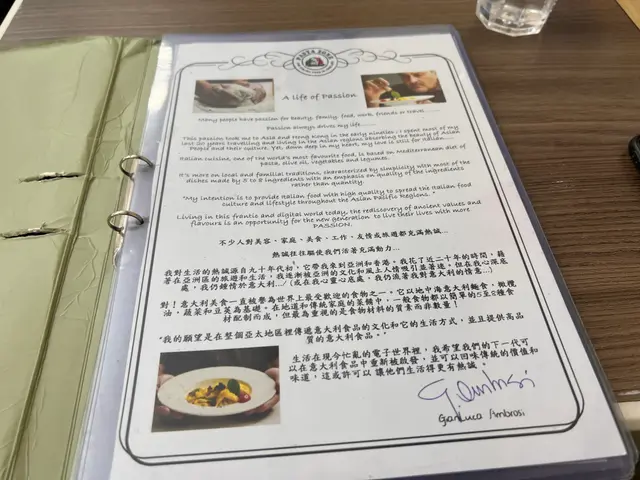 A life of Passion
Many people have passion for beauty, family, food, work, friends or travel........
Passion always drives my life.......
This passion took me to Asia and Hong Kong in the early nineties. I spent most of my
last 20 years travelling and living in the Asian regions absorbing the beauty of Asian
People and their culture. Yet, down deep in my heart, my love is still for Italian......
Italian cuisine, one of the world's most favourite food, is based on Mediterranean diet of
pasta, olive oil, vegetables and legumes.
It's more on local and familial traditions, characterized by simplicity with most of the
dishes made by 5 to 8 ingredients with an emphasis on quality of the ingredients
rather than quantity.
"My intention is to provide Italian food with high quality to spread the Italian food
culture and lifestyle throughout the Asian Pacific Regions."
Living in this frantic and digital world today, the rediscovery of ancient values and
flavours is an opportunity for the new generation to live their lives with more
PASSION.
不少人對美容、家庭、美食、工作、友情或旅遊都充滿熱誠...
熱誠往往驅使我們活著充滿動力...
我對生活的熱誠源自九十年代初，它帶我來到亞洲和香港。我花了近二十年的時間，藉
著在亞洲區的旅遊和生活，我逐漸被亞洲的文化和風土人情吸引並著迷。但在我心深底
處，我仍鍾情於意大利.../ (或在我心靈底處，我仍流著我對意大利的情意...)
對！意大利美食一直被譽為世界上最受歡迎的食物之一，它以地中海意大利麵食，橄欖
油，蔬菜和豆莢為基礎。在地道和傳統家庭的菜餚中，一般食物都以簡單的5至8種食
材配制而成，但最為重視的是食物材料的質素而非數量！
"我的願望是在整個亞太地區裡傳遞意大利食品的文化和它的生活方式，並且提供高品
質的意大利食品。"
生活在現今忙亂的電子世界裡，我希望我們的下一代可
以在意大利食品中重新被啟發，並可以回味傳統的價值和
味道，這或許可以 讓他們生活得更有熱誠。
GianLuca Ambrosi